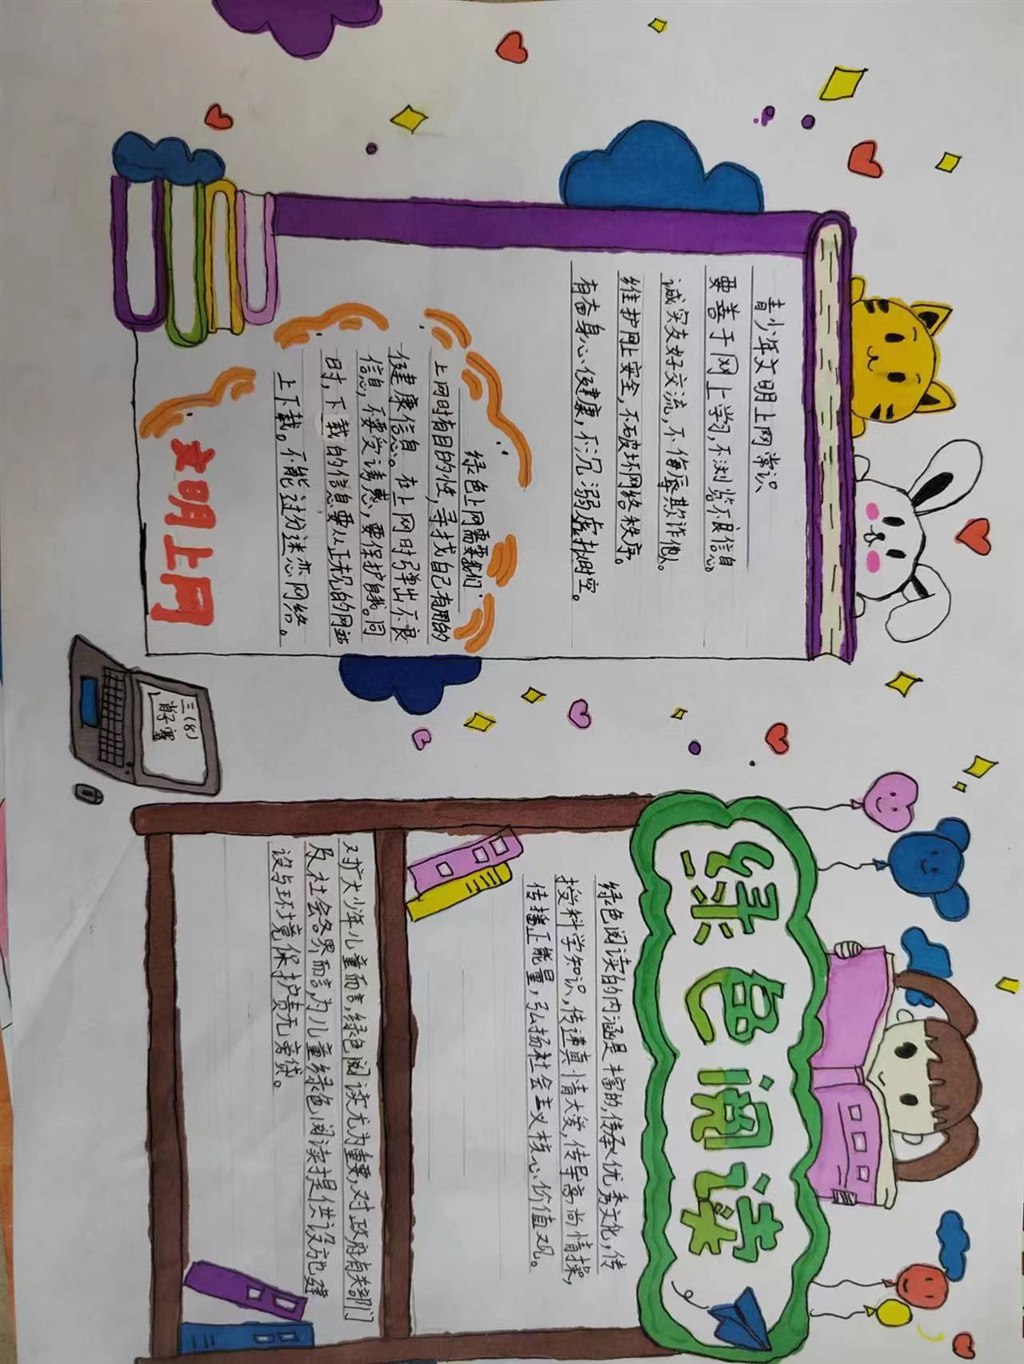 青少年文明上网常识
要善于网上学习,不浏览不良信息。
诚实友好交流,不侮辱欺诈他人。
维护网上安全,不破坏网络秩序。
有益身心健康,不沉溺虚拟时空。
绿色上网需要我们
上网时有目的性,寻找自己有用的
健康信息。在上网时弹出不良
信息,不要受诱惑,要保护自我。同
时,下载的信息要从正规的网站
上下载。不能过分迷恋网络。
文明上网
三(8)
绿色阅读
绿色阅读的内涵是丰富的,传承优秀文化,传
授科学知识,传递真情大爱,传导高尚情操,
传播正能量,弘扬社会主义核心价值观。
对扩大少年儿童而言,绿色阅读尤为重要,对政府有关部门
及社会各界而言,为儿童绿色阅读提供设施建
设与环境保护责无旁贷。